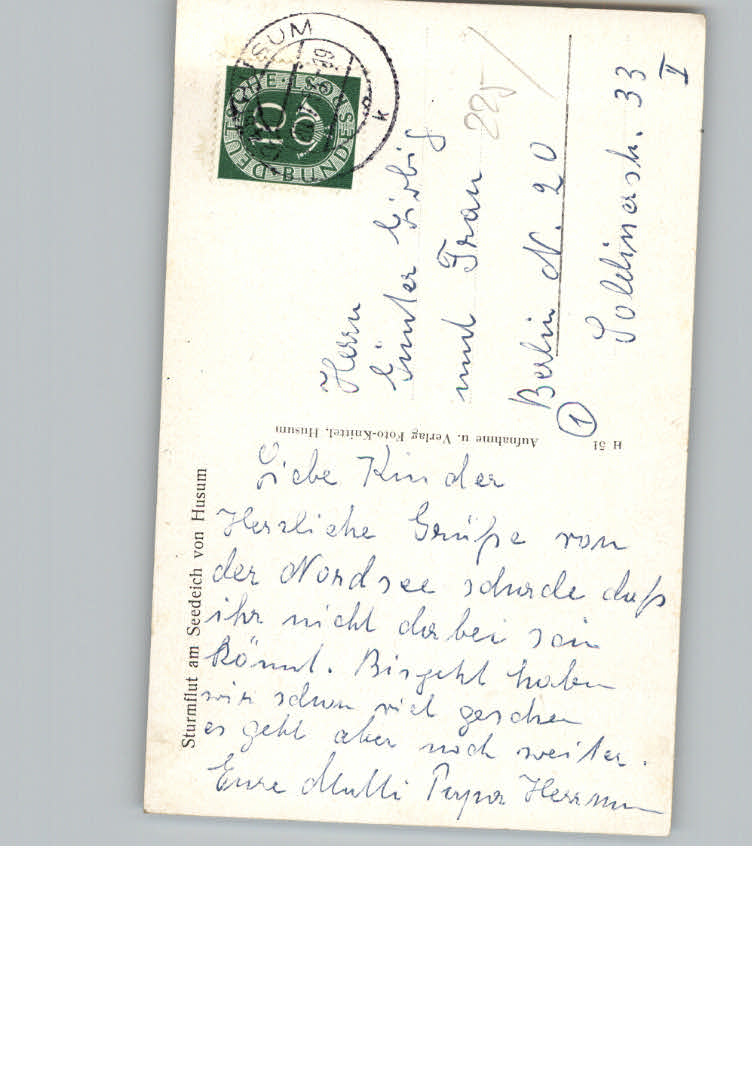 Sturmflut am Seedeich von Husum
Liebe Kinder
Herzliche Grüße von
der Nordsee schade daß
ihr nicht dabei sein
könnt. Bisjetzt haben
wir schon viel gesehen
es geht aber noch weiter.
Eure Mutti Papa Herrmann
Aufnahme u. Verlag Foto-Knittel, Husum
H 51
Herrn
Günter
und Frau
Berlin N. 20
1
Soldinerstr. 33
II
225
DEUTSCHE BUNDESPOST
10
HUSUM
k